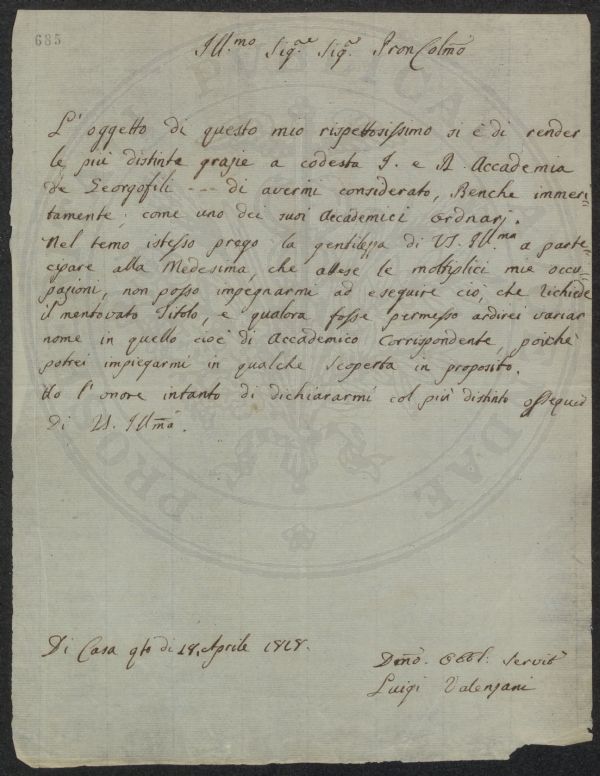 685
Ill.mo Sig.re Sig.re Pron Colmo
L' oggetto di questo mio rispettosissimo si è di render
le più distinte grazie a codesta I. e R. Accademia
de Georgofili --- di avermi considerato, Benche immeri-
tamente, come uno dei suoi Accademici ordnarj.
Nel temo istesso prego la gentilezza di VS. Ill.ma a parte-
cipare alla Medesima, che attese le moltiplici mie occu-
pazioni, non posso impegnarmi ad eseguire ciò, che richiede
il mentovato Titolo, e qualora fosse permesso ardirei variar
nome in quello cioè di Accademico Corrispondente, poichè
potrei impiegarmi in qualche scoperta in proposito.
Ho l'onore intanto di dichiararmi col più distinto ossequio
Di VS. Illma.
Di Casa qto di 18. Aprile 1818.
Dmo. Obbl. Servit
Luigi Valenzani